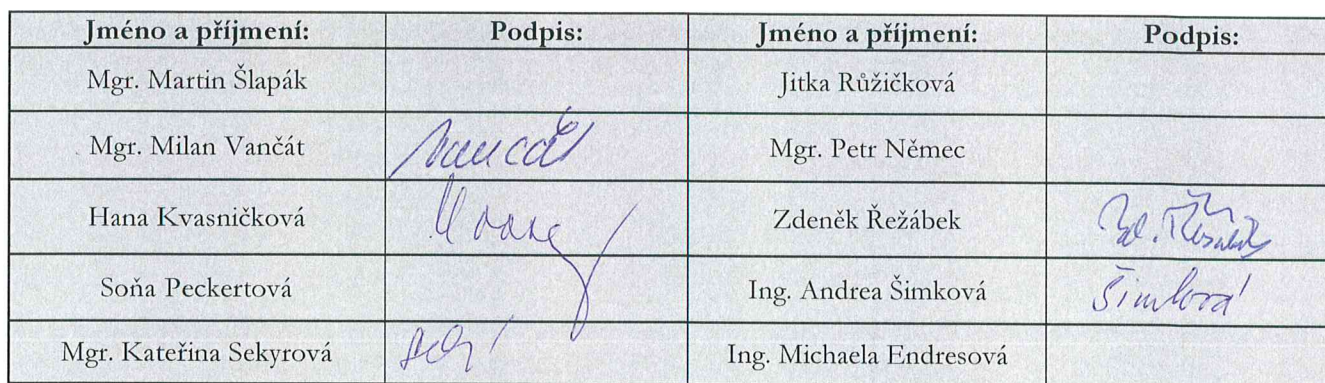 Jméno a příjmení: Podpis: Jméno a příjmení: Podpis:
Mgr. Martin Šlapák Jitka Růžičková
Mgr. Milan Vančát Mgr. Petr Němec
Hana Kvasničková Zdeněk Řežábek
Soňa Peckertová Ing. Andrea Šimková Šimková
Mgr. Kateřina Sekyrová Ing. Michaela Endresová